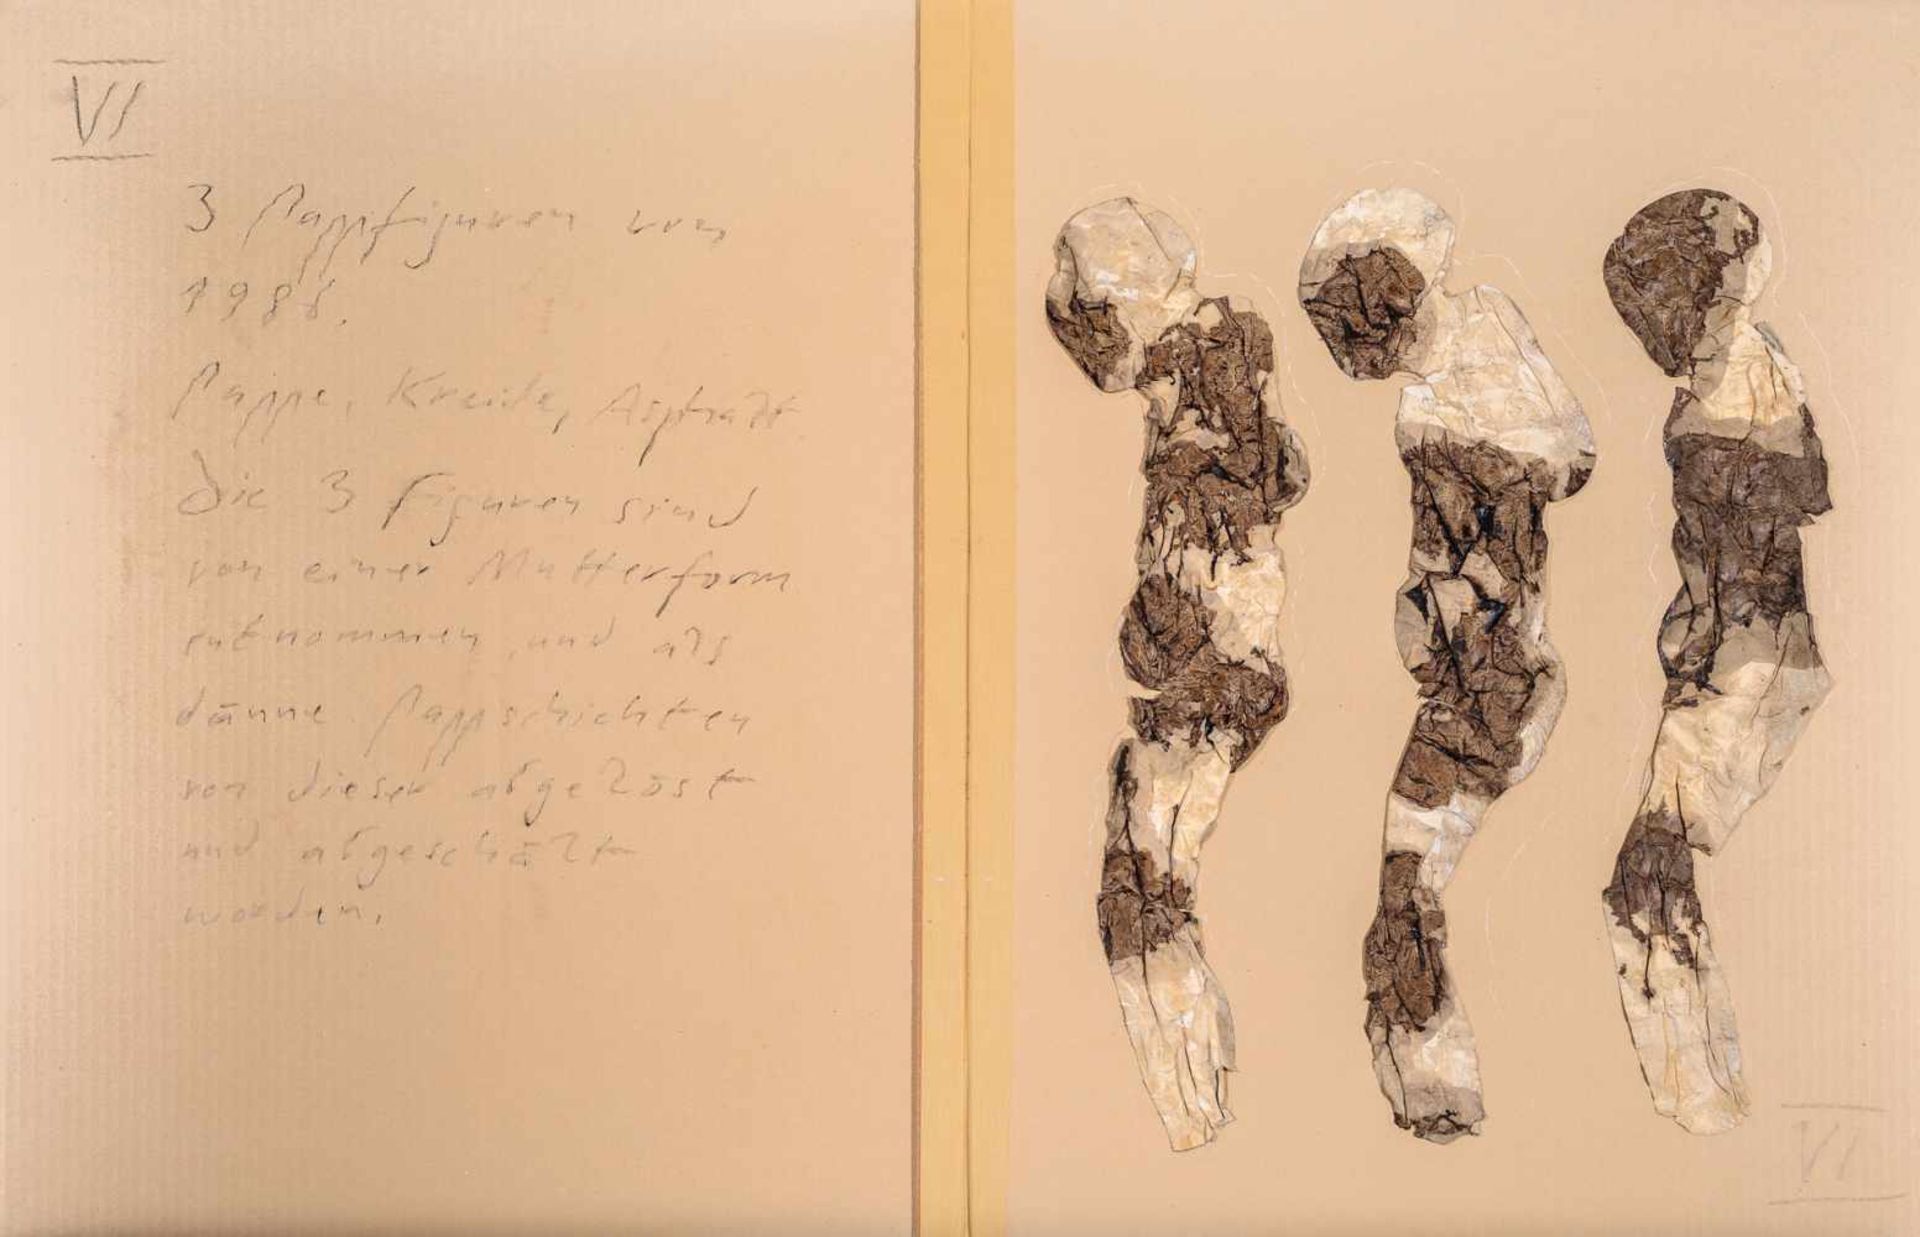 VI
3 Pappfiguren von
1988.
Pappe, Kreide, Asphalt.
Die 3 Figuren sind
von einer Mutterform
entnommen, und als
dünne Pappschichten
von dieser abgelöst
und abgeschält
worden.
VI